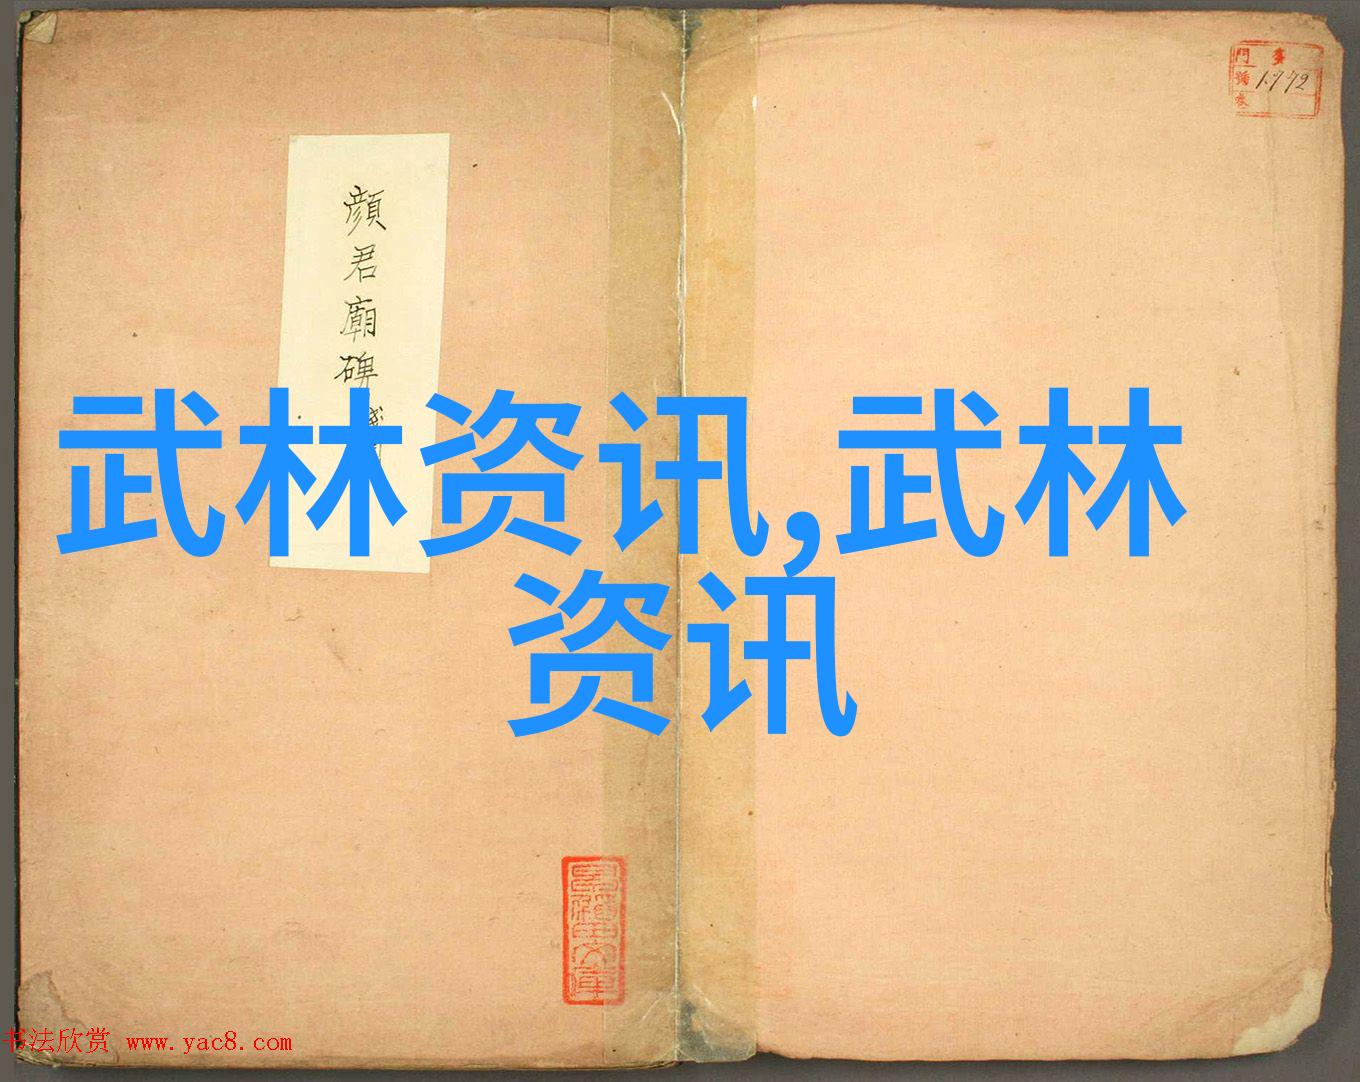 武林资讯,武林
资讯
顔君廟碑
門
號
1772
书法欣赏 www.yac8.com